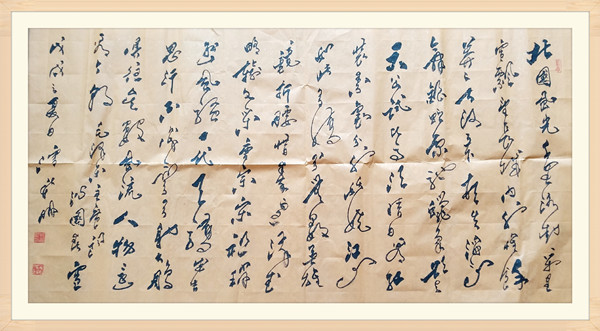 北国风光千里冰封万里
雪飘望长城内外惟余
莽莽大河上下顿失滔滔山
舞银蛇原驰蜡象欲与
天公试比高须晴日看红
装素裹分外妖娆江山
如此多娇引无数英雄
竞折腰惜秦皇汉武
略输文采唐宗宋祖稍逊
风骚一代天骄成吉
思汗只识弯弓射大雕
俱往矣数风流人物还
看今朝 毛泽东主席词
沁园春 雪
戊戌之夏日